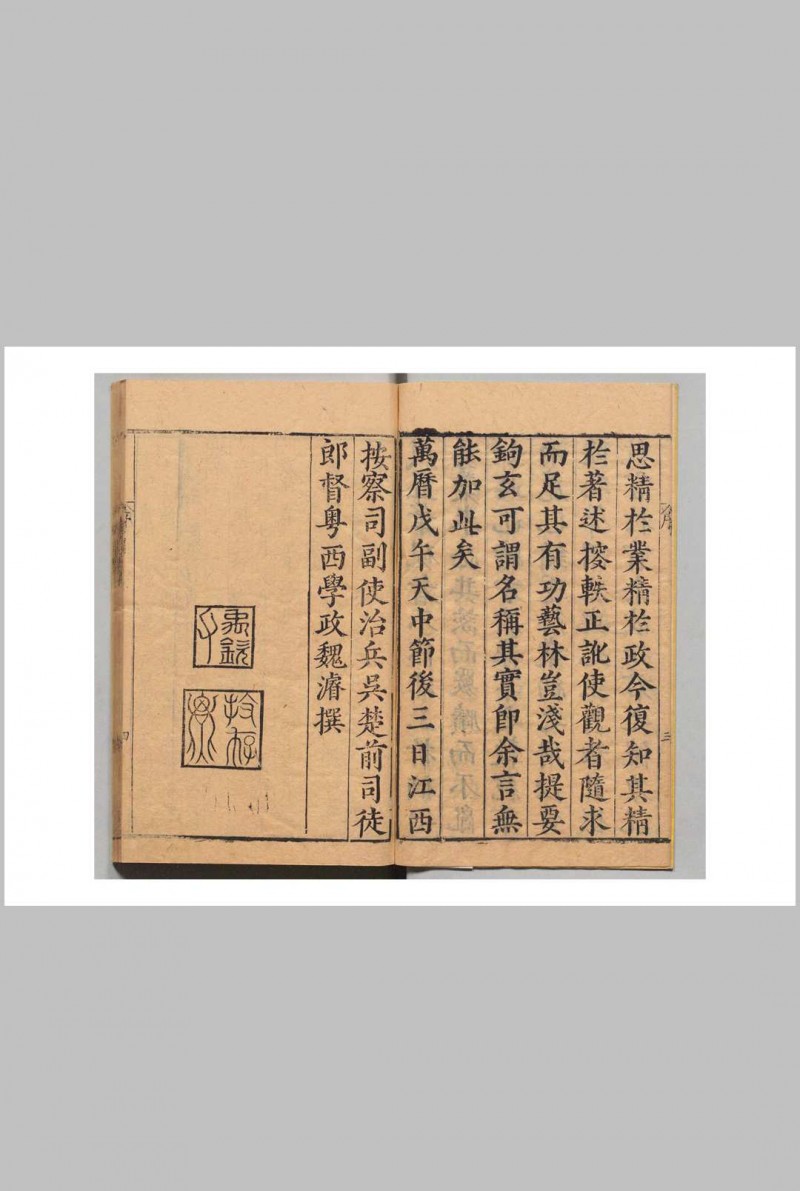 思精於業精於政今復知其精
於著述按軼正訛使觀者隨求
而足其有功藝林豈淺哉提要
鉤玄可謂名稱其實卽余言無
能加此矣
萬曆戊午天中節後三日江西
按察司副使治兵吳楚前司徒
郎督粵西學政魏濬撰
序
三
四